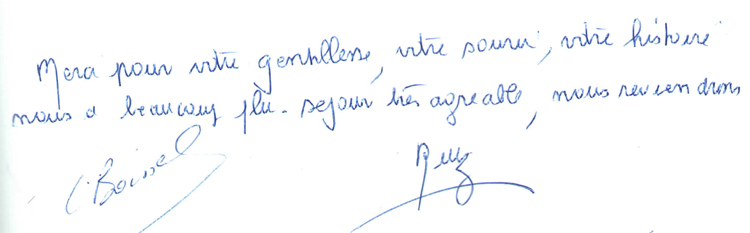 Merci pour votre gentillesse, votre sourire, votre histoire
nous a beaucoup plu. séjour très agréable, nous reviendrons